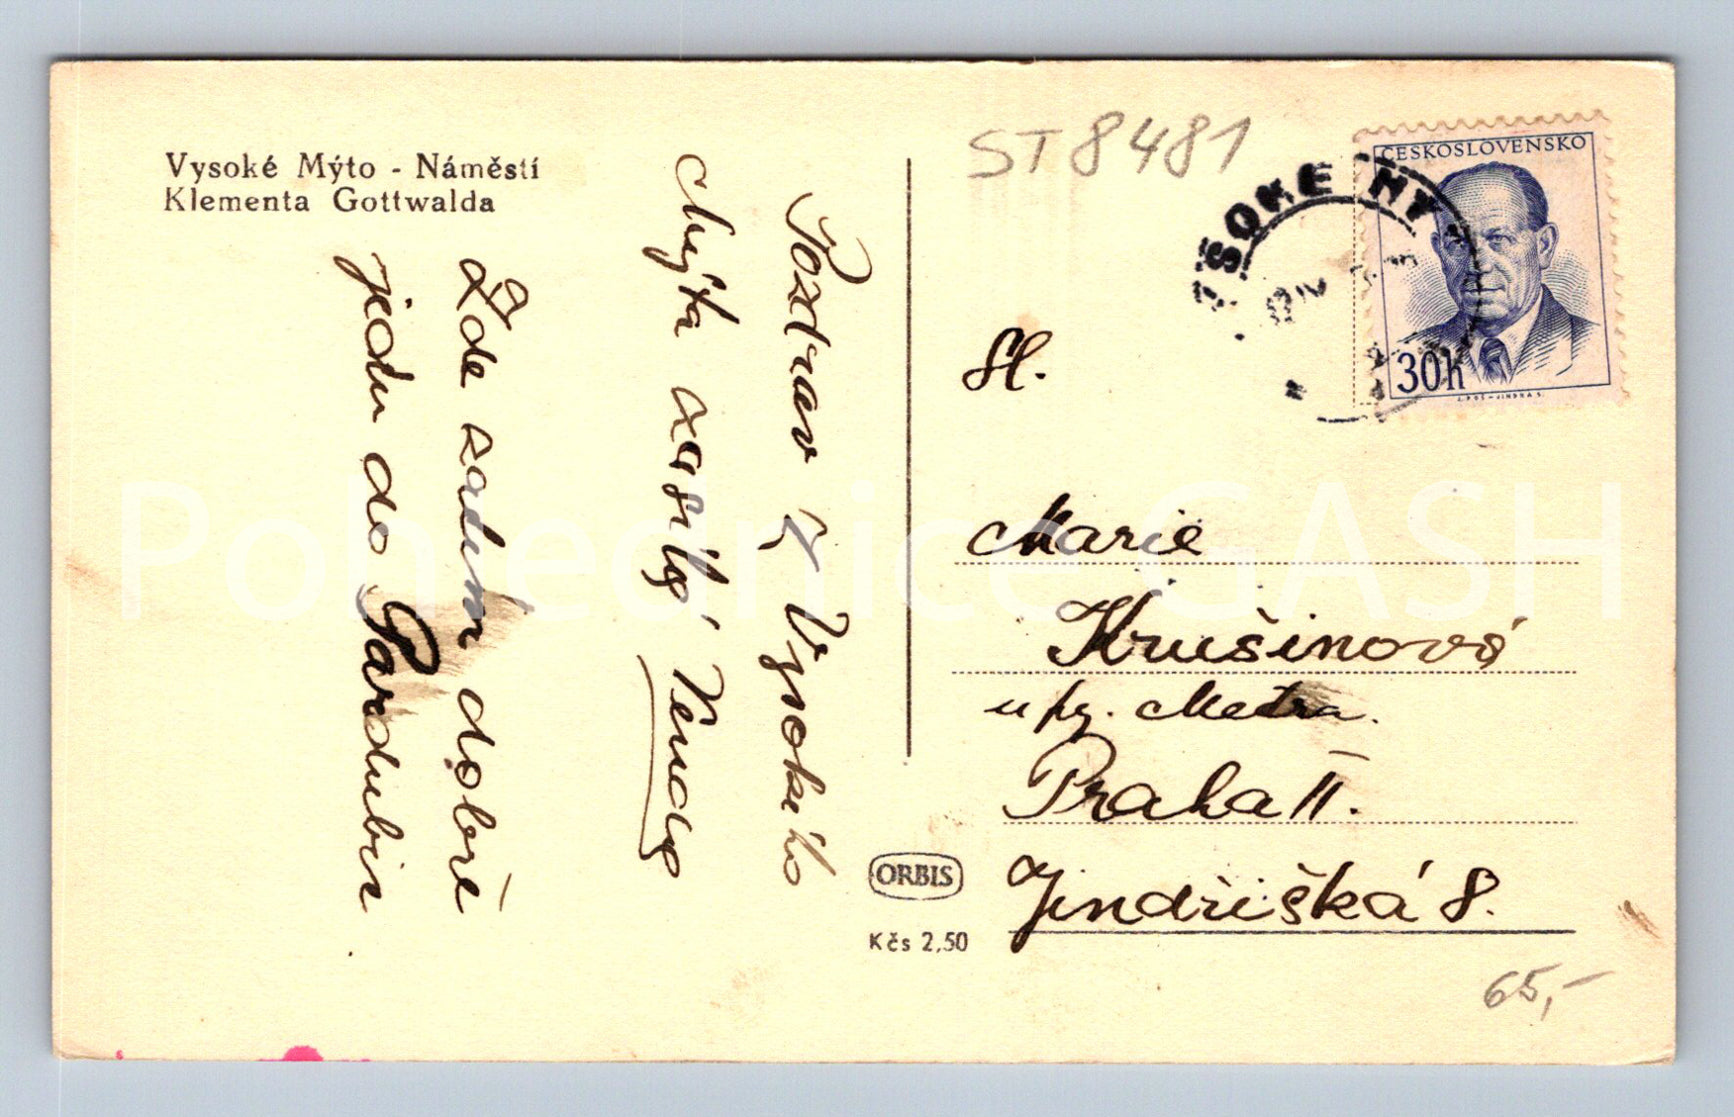 Vysoké Mýto - Náměstí
Klementa Gottwalda
Pozdrav z Vysokého
Mýta zasílá
Zde zatím dobré
jedu do Pardubic
ST 8481
ČESKOSLOVENSKO
30h
Sl.
Marie
Krušinová
Praha II.
Jindřišká 8.
ORBIS
Kčs 2,50
65,-
Pohlednice GASH